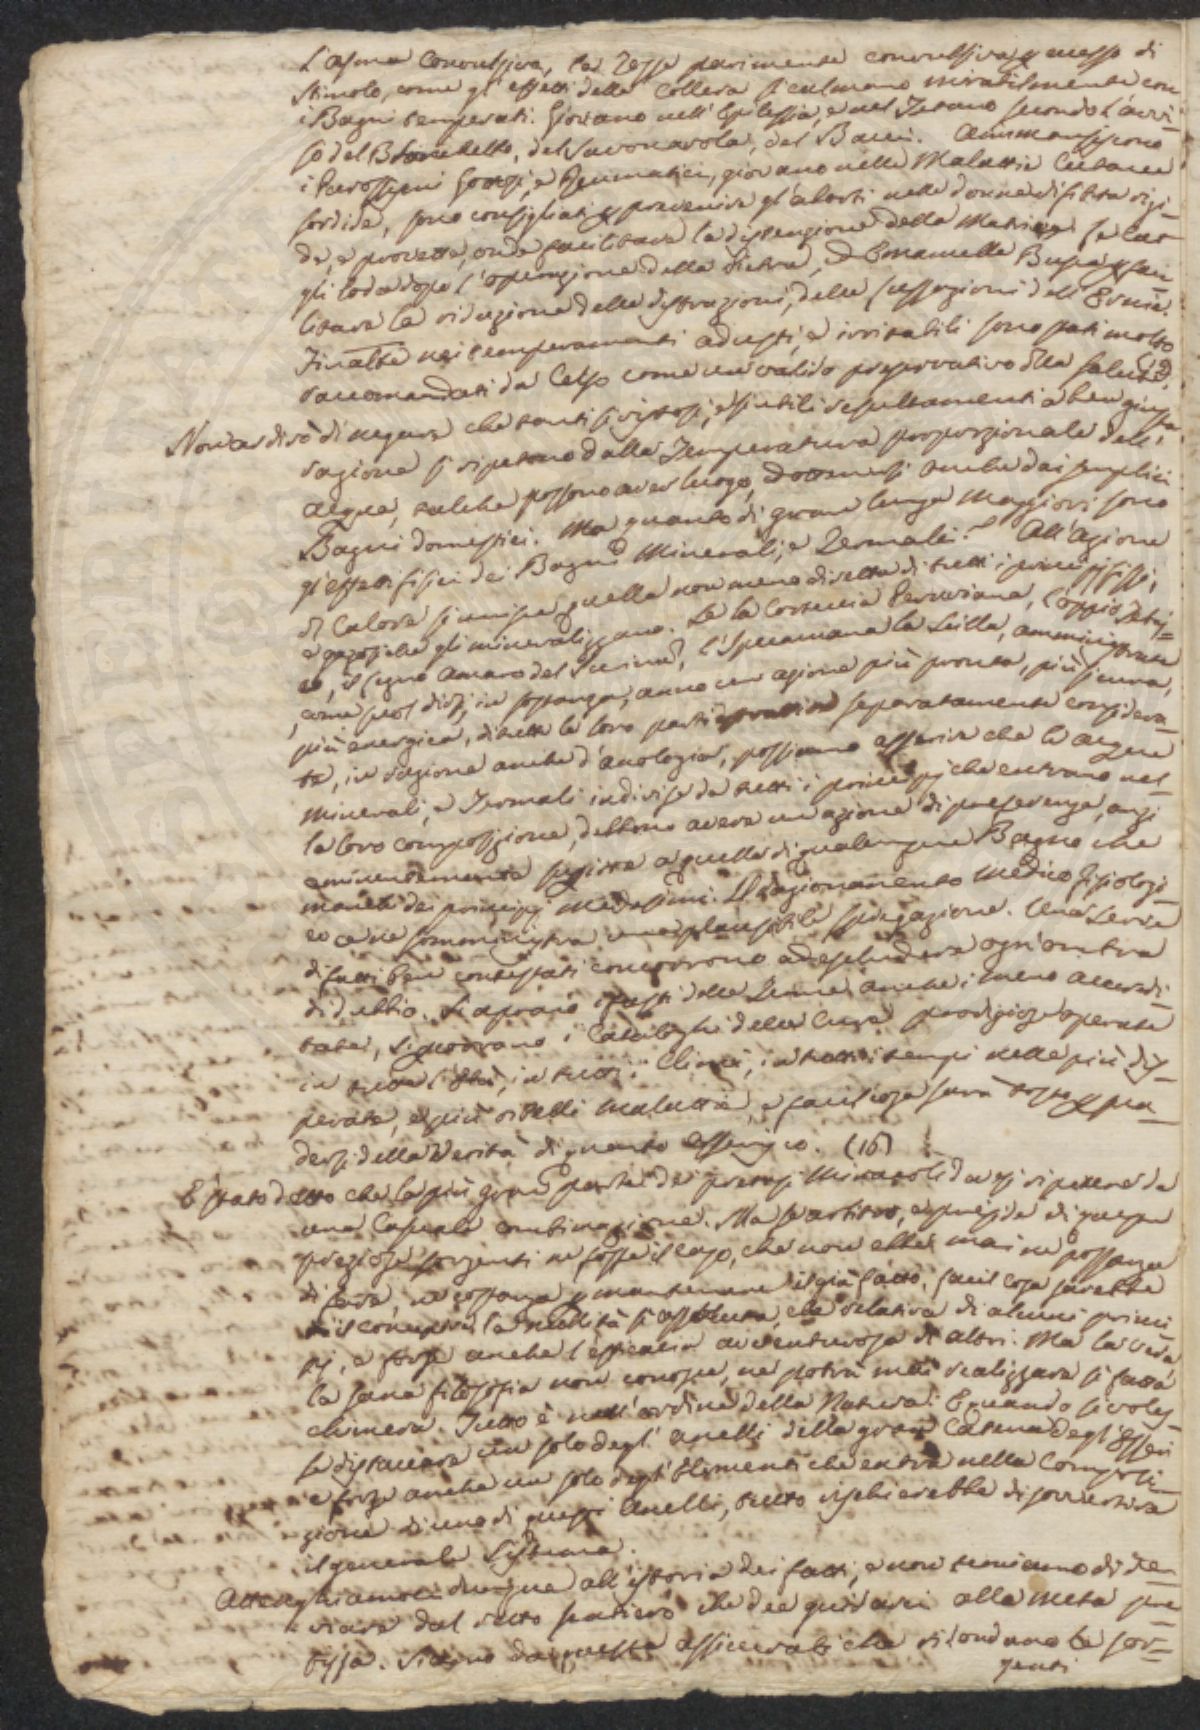 L'asma convulsiva, la Tosse parimente convulsiva p mezzo di
stimolo, come gl'effetti della Collera si calmano mirabilmente con
i Bagni temperati. Giovano nell'Epilessia, e nel Tetano secondo l'avvi-
so del Blondello, del Savonarola, del Bacci. Ammansiscono
i Parossismi Gottosi, e Reumatici, giovano nelle Malattie Cutanee
sordide, sono consigliati p prevenire gl'aborti nelle donne di fibra rigi-
da, e provette, onde facilitare la distenzione della Matrice
gli loda dopo l'operazione della Pietra, Emanuelle p faci-
litare la riduzione delle distrazioni, delle lussazioni dell'Ernie.
In alte nei temperamenti adusti, e irritabili sono stati molto
raccomandati da Celso come un valido preservativo della salute.
Non ardirò di negare che tanti si vistosi, e si utili resultamenti a ben giusta
ragione si ripetono dalla Temperatura proporzionale dell'
acque, talche possono aver luogo, ed ottenersi anche dai semplici
Bagni domestici. Ma quanto di gran lunga Maggiori sono
gl'effetti fisici dei Bagni Minerali, e Termali? All'azione
di Calore si unisce quella non meno diretta di tutti i principj fissi,
e gazosi che gli mineralizzano. Se la Corteccia Peruviana, l'oppio
il legno amaro del Surinam, l'Ipecacuana la Scilla, amministrate
come suol dirsi, in sostanza, anno un azione più pronta, più sicura,
più energica, di tutte le loro parti estrattive separatamente considera-
te, in ragione anche d'analogia, possiamo asserire che le acque
minerali, e Termali indivise da tutti i principj che entrano nel-
la loro composizione, debbono avere un azione di preferenza, anzi
eminentemente superiore a quella di qualunque Bagno che
manchi dei principj medesimi. Il ragionamento Medico fisiologi-
co ce ne somministra una plausibile spiegazione. Una serie
di fatti ben contestati concorrono ad escludere ogni ombra
di dubbio. Si aprano i fasti delle Terme anche i meno accredi-
tate, si scorrano i Cataloghi delle Cure prodigiose operate
in tutte l'Età, in tutti i Climi, in tutti i tempi nelle più dis-
perate, e più ribelli malattie, e facil cosa sarà tosto p sua-
dersi della Verità di quanto asserisco. (16)
È stato detto che la più gran parte dei pretesi Miracoli da ripetere da
una Casuale combinazione. Ma se arbitro, e preside di queste
preziose sorgenti ne fosse il caso, che non ebbe mai ne possanza
di fare, ne costanza p mantenere il già fatto, facil cosa sarebbe
il la nullità si assoluta, che relativa di alcuni princi
pj, e forse anche l'efficacia avventurosa di altri. Ma la vera
la sana filosofia non conosce, ne potrà mai realizzare si fatta
chimera. Tutto è nell'ordine della Natura. E quando si voles-
se distaccare un solo degl'anelli della gran Catena degl'Esseri
e forse anche un solo degl'Elementi che entra nella Composi-
zione di uno di questi Anelli, tutto rischierebbe di sovvertire
il generale Sistema.
Attenghiamoci dunque all'istoria dei fatti, e non temiamo di de-
viare dal retto sentiero che dee guidarci alla meta pre
fissa. Siamo da questa assicurati che ridondano le sor-
genti